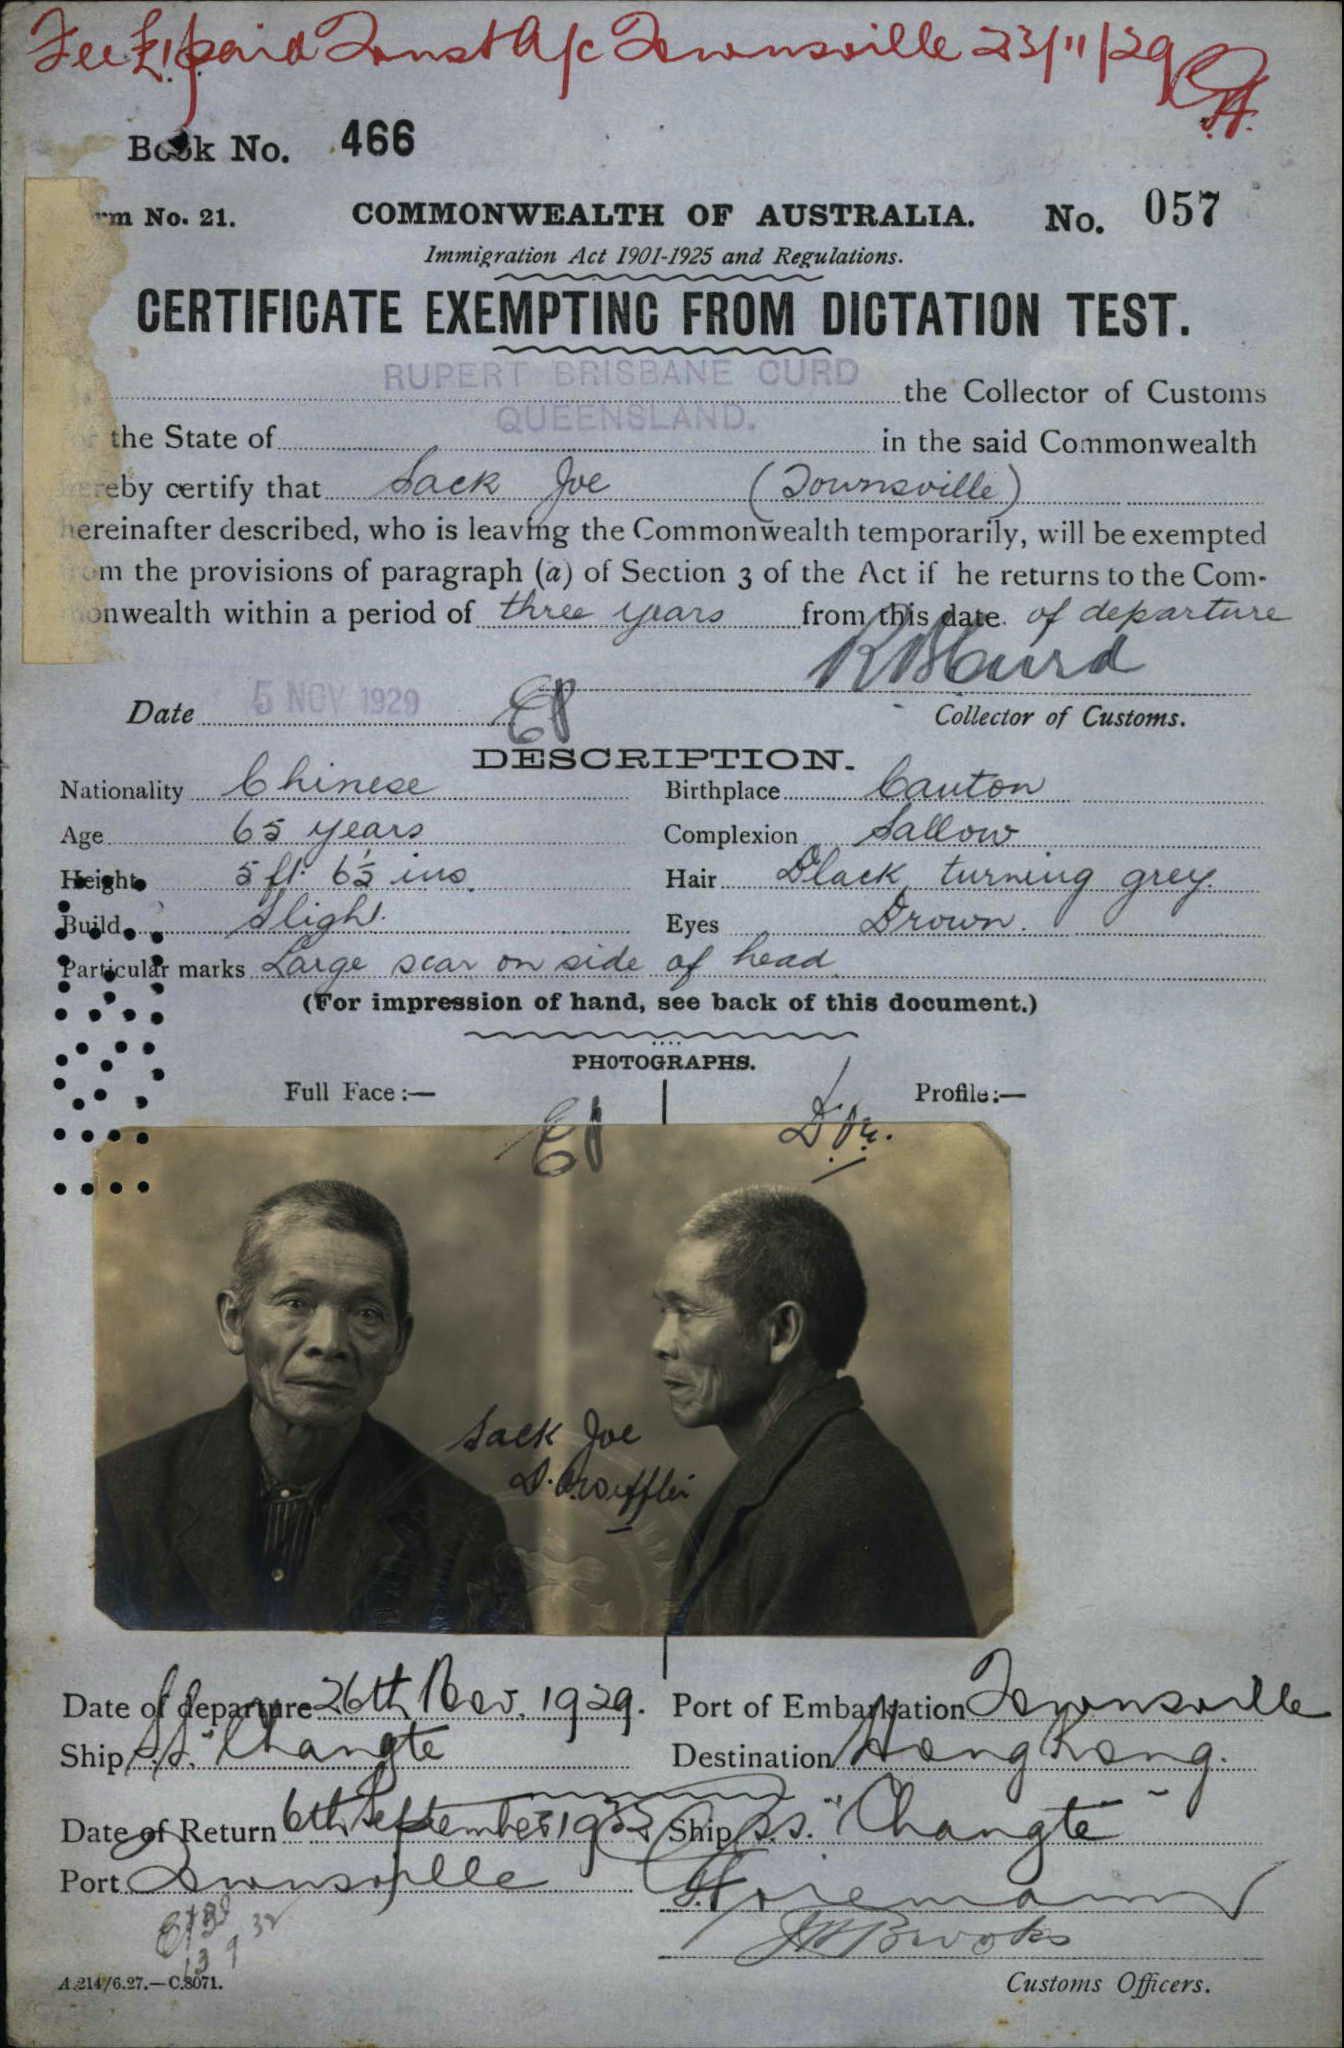 Fee £1 paid Trust A/c Townsville 23/11/29
Book No. 466
rm No. 21. COMMONWEALTH OF AUSTRALIA. No. 057
Immigration Act 1901-1925 and Regulations.
CERTIFICATE EXEMPTING FROM DICTATION TEST.
RUPERT BRISBANE CURD the Collector of Customs
for the State of QUEENSLAND. in the said Commonwealth
hereby certify that Sack Joe (Townsville)
hereinafter described, who is leaving the Commonwealth temporarily, will be exempted
from the provisions of paragraph (a) of Section 3 of the Act if he returns to the Com-
monwealth within a period of three years from this date of departure
R B Curd
Date 5 NOV 1929 Collector of Customs.
DESCRIPTION.
Nationality Chinese Birthplace Canton
Age 65 years Complexion Sallow
Height 5 ft 6½ ins. Hair Black turning grey.
Build Slight. Eyes Brown.
Particular marks Large scar on side of head.
(For impression of hand, see back of this document.)
PHOTOGRAPHS.
Full Face:— Profile:—
Sack Joe
Date of departure 26th Nov. 1929. Port of Embarkation Townsville
Ship S.S. "Changte Destination Hong Kong.
Date of Return 6th September 1932 Ship S.S. "Changte"
Port Townsville
J Brooks
13 9 32
A.214/6.27.—C.8071. Customs Officers.